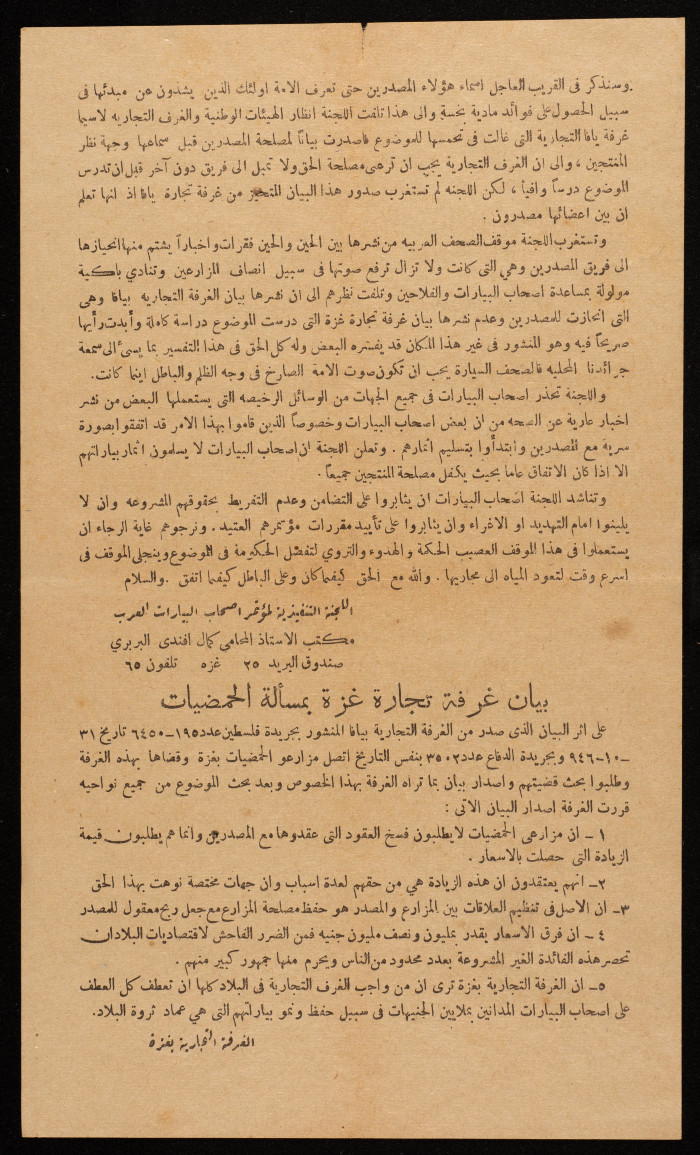 وسنذكر فى القريب العاجل اسماء هؤلاء المصدرين حتى تعرف الامة اولئك الذين يشذون عن مبدئها فى
سبيل الحصول على فوائد مادية بخسة والى هذا تلفت اللجنة انظار الهيئات الوطنية والغرف التجارية لاسيما
غرفة يافا التجارية التى غالت فى تحمسها للموضوع فاصدرت بياناً لمصلحة المصدرين قبل سماعها وجهة نظر
المنتجين ، والى ان الغرف التجارية يجب ان ترعى مصلحة الحق ولا تميل الى فريق دون آخر قبل ان تدرس
الموضوع درساً وافياً ، لكن اللجنه لم تستغرب صدور هذا البيان المتحيز من غرفة تجارة يافا اذ انها تعلم
ان بين اعضائها مصدرون .
وتستغرب اللجنة موقف الصحف العربيه من نشرها بين الحين والحين فقرات واخباراً يشتم منها انحيازها
الى فريق المصدرين وهى التى كانت ولا تزال ترفع صوتها فى سبيل انصاف المزارعين وتنادي باكية
مولولة بمساعدة اصحاب البيارات والفلاحين وتلفت نظرهم الى ان نشرها بيان الغرفة التجاريه بيافا وهى
التى انحازت للمصدرين وعدم نشرها بيان غرفة تجارة غزة التى درست الموضوع دراسة كاملة وأبدت رأيها
صريحاً فيه وهو المنشور فى غير هذا المكان قد يفسره البعض وله كل الحق فى هذا التفسير بما يسئ الى سمعة
جرائدنا المحليه فالصحف السيارة يجب ان تكون صوت الامة الصارخ فى وجه الظلم والباطل اينما كانت.
واللجنة تحذر اصحاب البيارات فى جميع الجهات من الوسائل الرخيصه التى يستعملها البعض من نشر
اخبار عارية عن الصحه من ان بعض اصحاب البيارات وخصوصاً الذين قاموا بهذا الامر قد اتفقوا بصورة
سرية مع المصدرين وابتدأوا بتسليم اثمارهم . وتعلن اللجنة ان اصحاب البيارات لا يسلمون اثمار بياراتهم
الا اذا كان الاتفاق عاماً بحيث يكفل مصلحة المنتجين جميعاً .
وتناشد اللجنة اصحاب البيارات ان يثابروا على التضامن وعدم التفريط بحقوقهم المشروعه وان لا
يلينوا امام التهديد او الاغراء وان يثابروا على تأييد مقررات مؤتمرهم العتيد . ونرجوهم غاية الرجاء ان
يستعملوا فى هذا الموقف العصيب الحكمة والهدوء والتروي لتفصل الحكومة فى الموضوع وينجلى الموقف فى
اسرع وقت لتعود المياه الى مجاريها . والله مع الحق كيفما كان وعلى الباطل كيفما اتفق . والسلام
اللجنة التنفيذية لمؤتمر اصحاب البيارات العرب
مكتب الاستاذ المحامى كمال افندى البربري
صندوق البريد ٢٥ غزه تلفون ٦٥
بيان غرفة تجارة غزة بمسألة الحمضيات
على اثر البيان الذى صدر من الغرفة التجارية بيافا المنشور بجريدة فلسطين عدد ١٩٥-٦٤٥٠ تاريخ ٣١
-١٠-٩٤٦ وبجريدة الدفاع عدد ٣٥٠٢ بنفس التاريخ اتصل مزارعو الحمضيات بغزة وقضاها بهذه الغرفة
وطلبوا بحث قضيتهم واصدار بيان بما تراه الغرفة بهذا الخصوص وبعد بحث الموضوع من جميع نواحيه
قررت الغرفة اصدار البيان الآتى :
١ - ان مزارعى الحمضيات لا يطلبون فسخ العقود التى عقدوها مع المصدرين وانما هم يطلبون قيمة
الزيادة التى حصلت بالاسعار .
٢- انهم يعتقدون ان هذه الزيادة هي من حقهم لعدة اسباب وان جهات مختصة نوهت بهذا الحق
٣- ان الاصل فى تنظيم العلاقات بين المزارع والمصدر هو حفظ مصلحة المزارع مع جعل ربح معقول للمصدر
٤ - ان فرق الاسعار يقدر بمليون ونصف مليون جنيه فمن الضرر الفاحش لاقتصاديات البلاد ان
تحصر هذه الفائدة الغير المشروعة بعدد محدود من الناس ويحرم منها جمهور كبير منهم .
٥- ان الغرفة التجارية بغزة ترى ان من واجب الغرف التجارية فى البلاد كلها ان تعطف كل العطف
على اصحاب البيارات المدانين بملايين الجنيهات فى سبيل حفظ ونمو بياراتهم التى هي عماد ثروة البلاد.
الغرفة التجارية بغزة